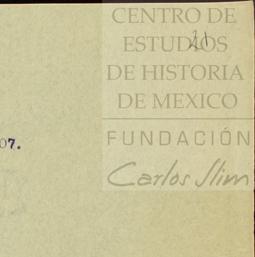 CENTRO DE
ESTUDIOS
21
DE HISTORIA
DE MEXICO
FUNDACIÓN
Carlos Slim
07.